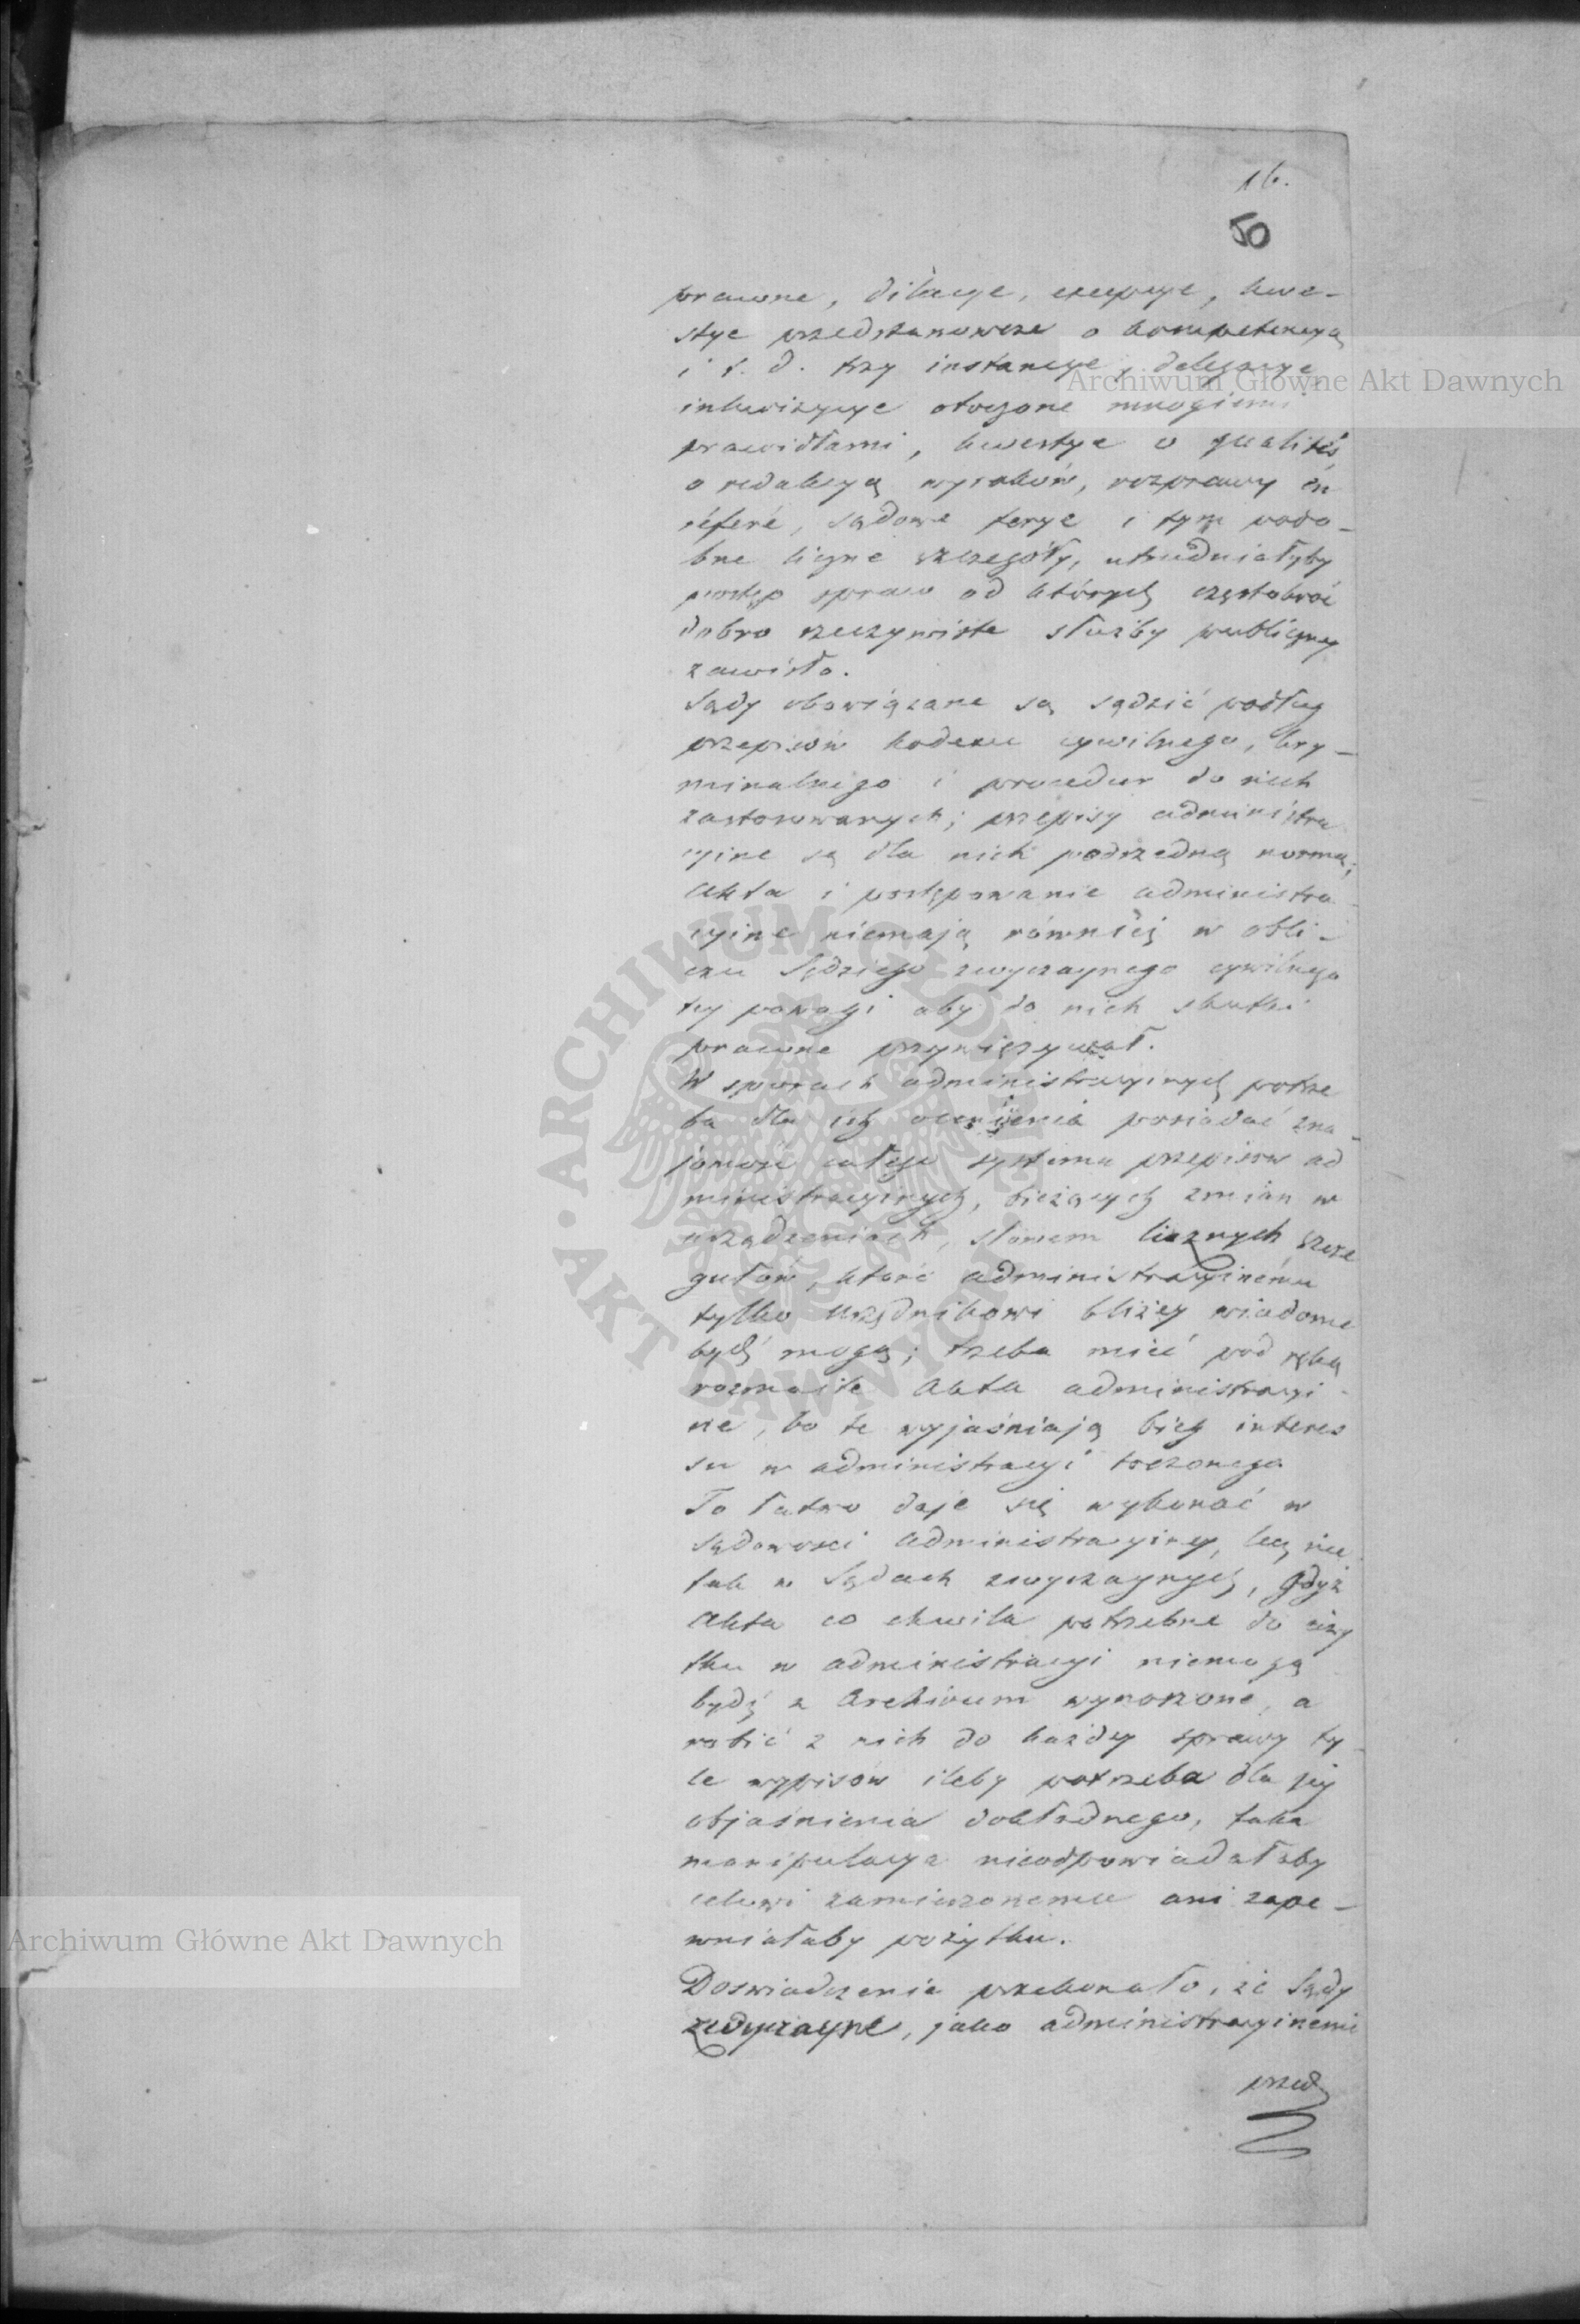 16.
50
prawne, dilacye, excepcye, kwe-
stye przedstanowcze o kompetencyą
i t. d. trzy instancye, delegacye
inkwizycye otoczone mnogiemi
prawidłami, kwestye o qualités
o redakcyą wyroków, rozprawy en
référé, sądowe ferye i tym podo-
bne liczne szczegóły, utrudniałyby
postęp spraw od których częstokroć
dobro rzeczywiste służby publiczney
zawisło.
Sądy obowiązane są sądzić podług
przepisów kodexu cywilnego, kry-
minalnego i procedur do nich
zastosowanych; przepisy administra
cyine są dla nich podrzędną normą;
Akta i postępowanie administra-
cyine niemają również w obli-
czu Sędziego zwyczaynego cywilnego
tey powagi aby do nich skutki
prawne przywięzywał.
W sporach administracyinych potrze
ba dla ich ocenienia posiadać zna-
jomość całego systemu przepisów ad
ministracyinych, bieżących zmian w
urządzeniach, słowem licznych szcze
gułów, które administracyinému
tylko Urzędnikowi bliżey wiadome
bydź mogą; trzeba mieć pod ręką
rozmaite Akta administracyi-
ne, bo te wyjaśniają bieg interes
su w administracyi toczonego
To łatwo daje się wykonać w
sądowości Administracyiney, lecz nie
tak w Sądach zwyczaynych, gdyż
Akta co chwila potrzebne do uży
tku w administracyi niemogą
bydź z Archivum wynoszone, a
robić z nich do każdey sprawy ty-
le wypisów ileby potrzeba dla jey
objaśnienia dokładnego, taka
manipulacya nieodpowiadałaby
celowi zamierzonemu ani zape-
wniałaby pożytku.
Doswiadczenie przekonało, że Sądy
zwyczayne, jako administracyinemi
przed
Archiwum Główne Akt Dawnych
Archiwum Główne Akt Dawnych
ARCHIWUM GŁÓWNE • AKT DAWNYCH •